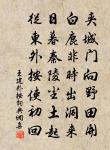 夹城门向野田开
白鹿非时出洞来
日暮秦陵尘土起
从东外按使初回
王建外按诗词典阅真